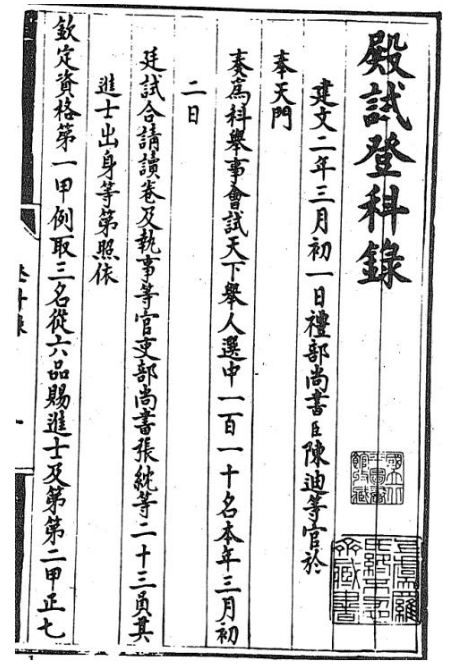 殿試登科錄
建文二年三月初一日禮部尚書臣陳迪等官於
奉天門
奏爲科舉事會試天下舉人選中一百一十名本年三月初
二日
廷試合請讀卷及執事等官吏部尚書張紞等二十三員其
進士出身等第照依
欽定資格第一甲例取三名從六品賜進士及第第二甲正七